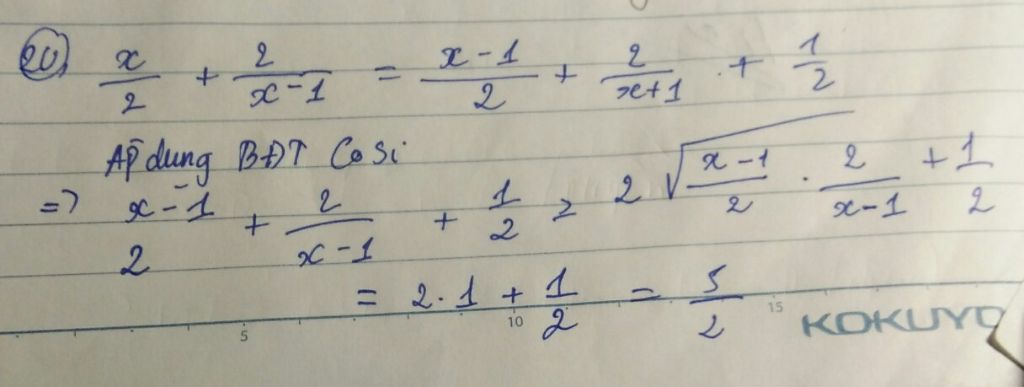 20) x/2 + 2/(x-1) = (x-1)/2 + 2/(x+1) + 1/2
Áp dụng BĐT Cosi
=> (x-1)/2 + 2/(x-1) + 1/2 ≥ 2√((x-1)/2 . 2/(x-1)) + 1/2
= 2.1 + 1/2 = 5/2
5 10 15 KOKUYO